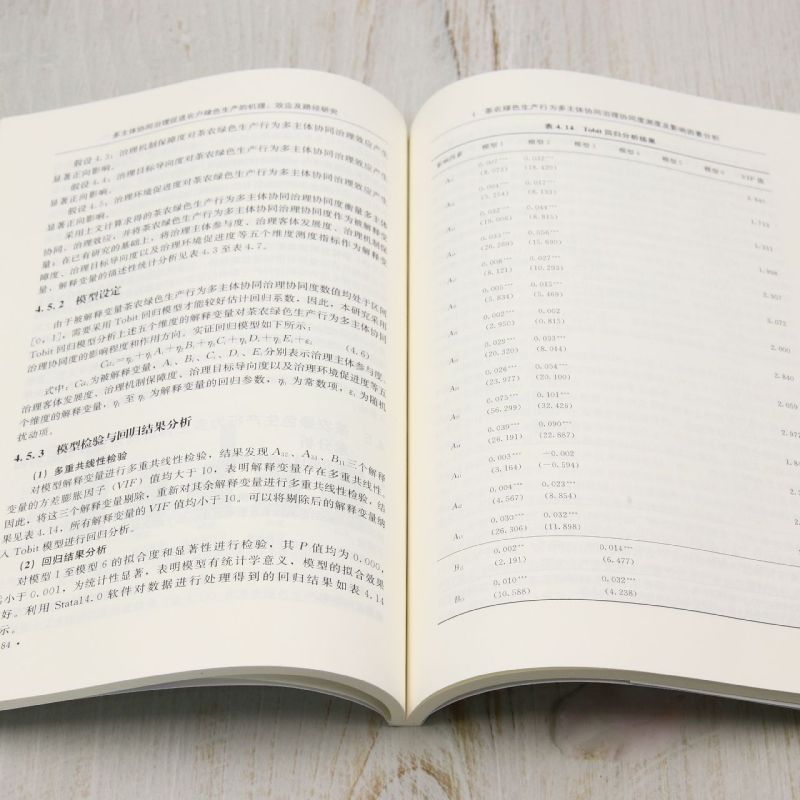 多主体协同治理促进农户绿色生产的机理、效应及路径研究
假设 4.3：治理机制保障度对茶农绿色生产行为多主体协同治理效应产生
显著正向影响。
假设 4.4：治理目标导向度对茶农绿色生产行为多主体协同治理效应产生
显著正向影响。
假设 4.5：治理环境促进度对茶农绿色生产行为多主体协同治理效应产生
显著正向影响。
采用上文计算求得的茶农绿色生产行为多主体协同治理协同度衡量多主体
协同治理效应，并将茶农绿色生产行为多主体协同治理协同度作为被解释变
量；在已有研究的基础上，将治理主体参与度、治理客体发展度、治理机制保
障度、治理目标导向度以及治理环境促进度等五个维度测度指标作为解释变
量，解释变量的描述性统计分析见表 4.3 至表 4.7。
4.5.2 模型设定
由于被解释变量茶农绿色生产行为多主体协同治理协同度数值均处于区间
[0，1]，需要采用 Tobit 回归模型才能较好估计回归系数，因此，本研究采用
Tobit 回归模型分析上述五个维度的解释变量对茶农绿色生产行为多主体协同
治理协同度的影响程度和作用方向。实证回归模型如下所示：
(4.6)
式中：为被解释变量，A、B、C、D、E 分别表示治理主体参与度、
治理客体发展度、治理机制保障度、治理目标导向度以及治理环境促进度等五
个维度的解释变量，为解释变量的回归参数，为常数项，为随机
扰动项。
4.5.3 模型检验与回归结果分析
(1) 多重共线性检验
对模型解释变量进行多重共线性检验，结果发现 A₃₂、A₃₄、B₁₁ 三个解释
变量的方差膨胀因子（VIF）值均大于 10，表明解释变量存在多重共线性。
因此，将这三个解释变量剔除，重新对其余解释变量进行多重共线性检验，结
果见表 4.14，所有解释变量的 VIF 值均小于 10。可以将剔除后的解释变量纳
入 Tobit 模型进行回归分析。
(2) 回归结果分析
对模型 1 至模型 6 的拟合度和显著性进行检验，其 P 值均为 0.000，
小于 0.001，为统计性显著，表明模型有统计学意义，模型的拟合效果
好。利用 Stata14.0 软件对数据进行处理得到的回归结果如表 4.14
示。
84 ·
4 茶农绿色生产行为多主体协同治理协同度测度及影响因素分析
表 4.14 Tobit 回归分析结果
影响因素 模型 1 模型 2 模型 3 模型 4 模型 5 模型 6 VIF 值
0.007*** 0.032***
(8.073) (18.429)
(5.254) (8.133)
0.032*** 0.044***
(19.006) (8.815)
0.033*** 0.056***
(26.269) (15.690)
0.008*** 0.027***
(8.121) (10.293)
0.005*** 0.015***
(5.834) (5.469)
0.002*** 0.002
(2.950) (0.815)
0.029*** 0.033***
(20.320) (8.014)
0.026*** 0.054***
(23.977) (20.100)
0.075*** 0.101***
(56.299) (32.428)
0.039*** 0.090***
(26.191) (22.887)
0.003*** -0.002
(3.164) (-0.594)
0.004*** 0.023***
(4.567) (8.854)
0.030*** 0.032***
(26.306) (11.898)
0.002** 0.014***
(2.191) (6.477)
0.010*** 0.032***
(10.588) (4.238)